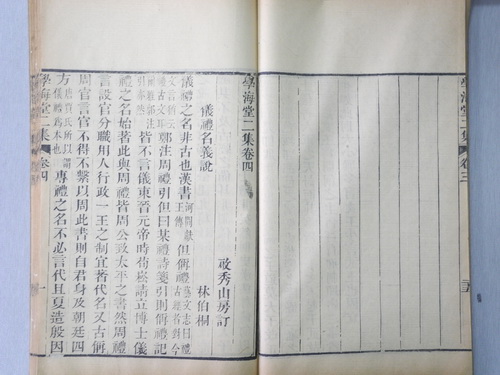 學海堂二集 卷三
學海堂二集卷四
啟秀山房訂
儀禮名義說
林伯桐
儀禮之名非古也漢書河間獻王傳但偁禮藝文志曰禮古經者對今
鄭注周禮引但曰某禮詩箋引則偁禮記
皆不言儀東晉元帝時荀崧請立博士儀
禮之名始著此與周禮皆周公致太平之書然周禮
言設官分職用人行政一王之制宜著代名又古偁
周官言官不得不繫以周此書則自君身及朝廷四
方唐賈氏所謂儀禮為本也專禮之名不必言代且夏造殷因
學海堂二集 卷四 一